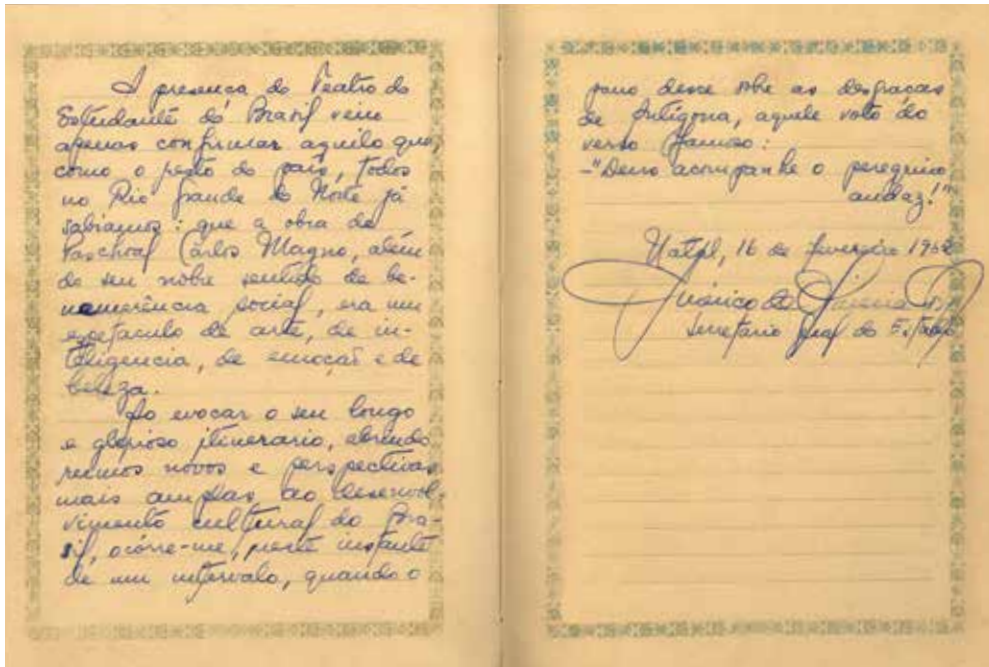 A presença do Teatro do
Estudante do Brasil veio
apenas confirmar aquilo que,
como o resto do país, todos
no Rio Grande do Norte já
sabiamos: que a obra de
Paschoal Carlos Magno, além
do seu nobre sentido de be-
nemerência social, era um
espetaculo de arte, de in-
teligencia, de emoção e de
beleza.
Ao evocar o seu longo
e glorioso itinerario, abrindo
rumos novos e perspectivas
mais amplas ao desenvol-
vimento cultural do Bra-
sil, ocorre-me, neste instante
de um intervalo, quando o
pano desce sobre as desgraças
de Antigona, aquele voto do
verso famoso:
-"Deus acompanhe o peregrino
audaz!"
Natal, 16 de fevereiro 1952
Américo de Oliveira
Secretario geral do Estado